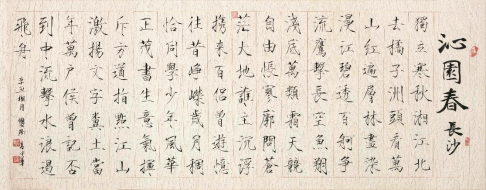 沁園春
長沙
獨立寒秋湘江北
去橘子洲頭看萬
山紅遍層林盡染
漫江碧透百舸爭
流鷹擊長空魚翔
淺底萬類霜天競
自由悵寥廓問蒼
茫大地誰主沉浮
携来百侶曾遊憶
往昔崢嶸歲月稠
恰同學少年風華
正茂書生意氣揮
斥方遒指點江山
激揚文字糞土當
年萬戶侯曾記否
到中流擊水浪遏
飛舟
辛丑